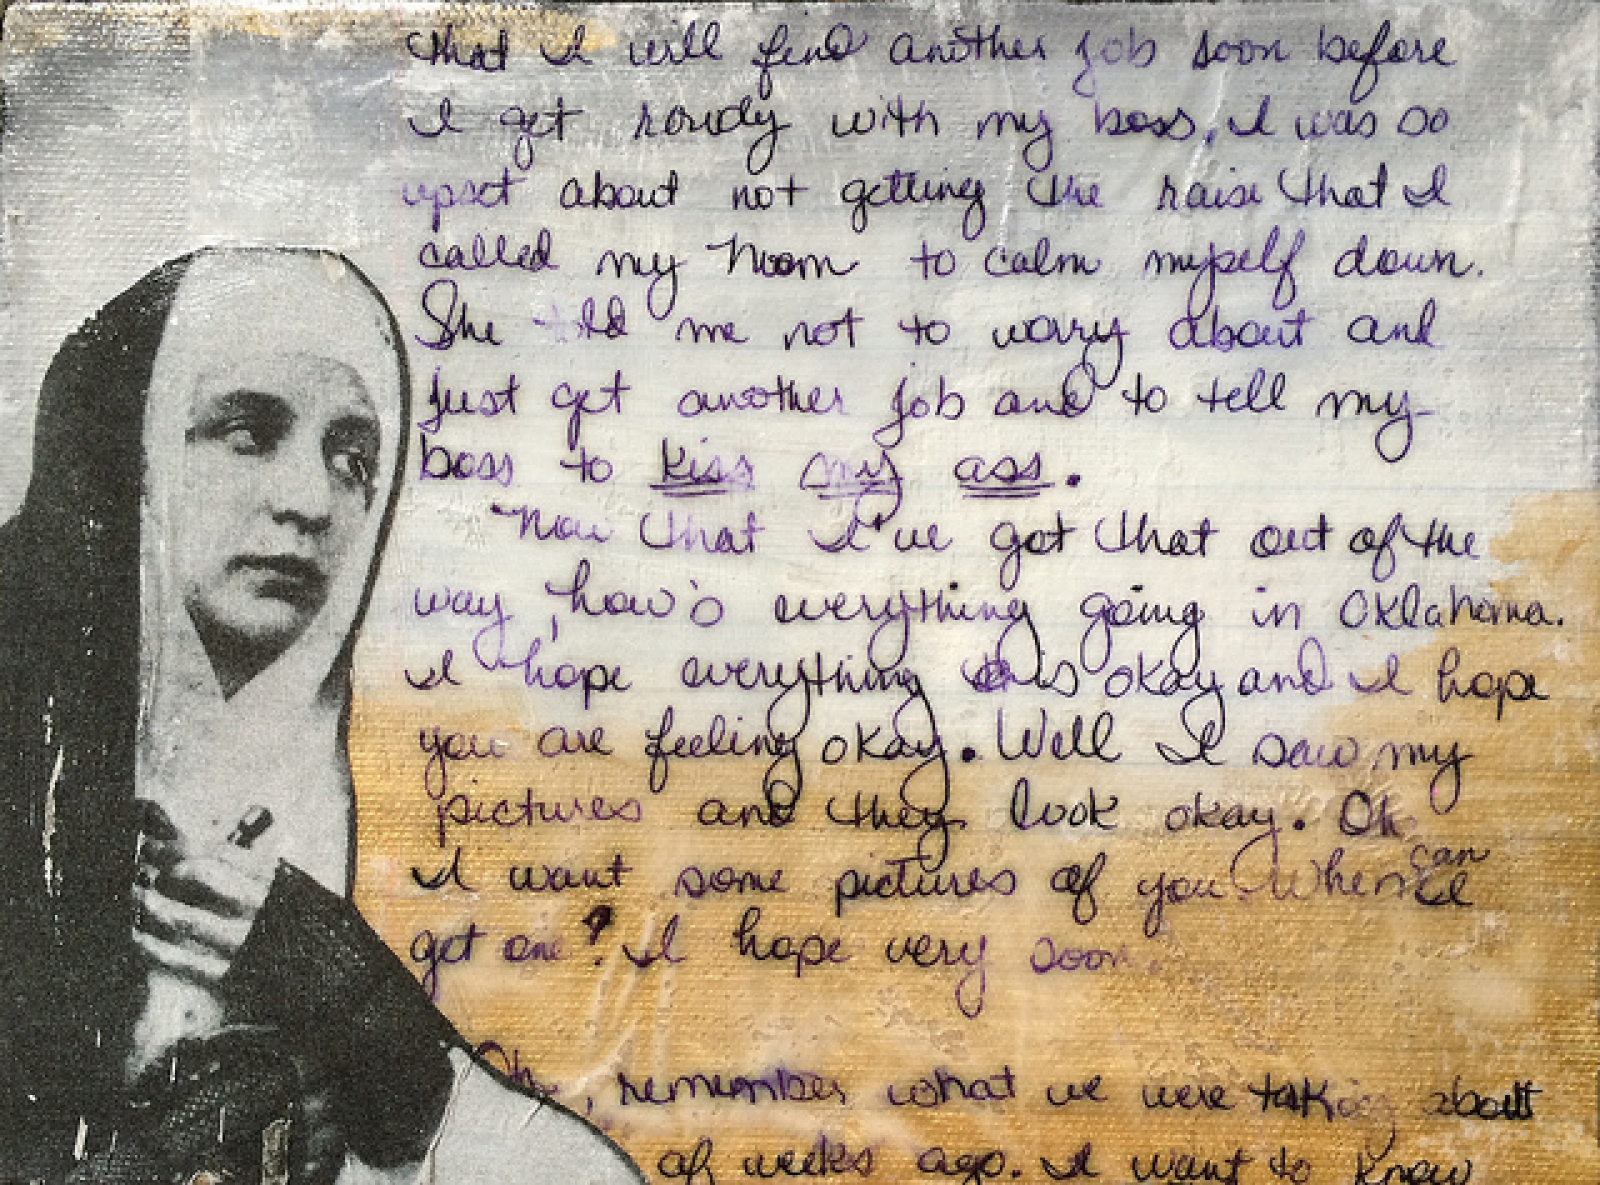 that I will find another job soon before
I get rowdy with my boss. I was so
upset about not getting the raise that I
called my Mom to calm myself down.
She told me not to worry about and
just get another job and to tell my
boss to kiss my ass.
Now that I've got that out of the
way, how's everything going in Oklahoma.
I hope everything is okay and I hope
you are feeling okay. Well I saw my
pictures and they look okay. Ok
I want some pictures of you. When can I
get one? I hope very soon.
Oh, remember what we were talking about
of weeks ago. I want to know